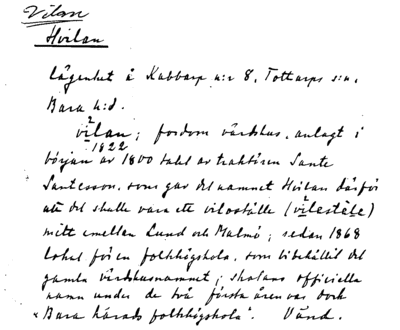 Vilan
Hvilan
lägenhet å Kabbarp n:r 8, Tottarps s:n,
Bara h:d.
vilan; fordom värdshus, anlagt i
-1822
början av 1800 talet av traktören Sante
Santesson, som gav det namnet Hvilan därför
att det skulle vara ett viloställe (vilestäle)
mitt emellan Lund och Malmö; sedan 1868
lokal för en folkhögskola, som bibehållit det
gamla värdshusnamnet; skolans officiella
namn under de två första åren var dock
"Bara härads folkhögskola". Vänd.